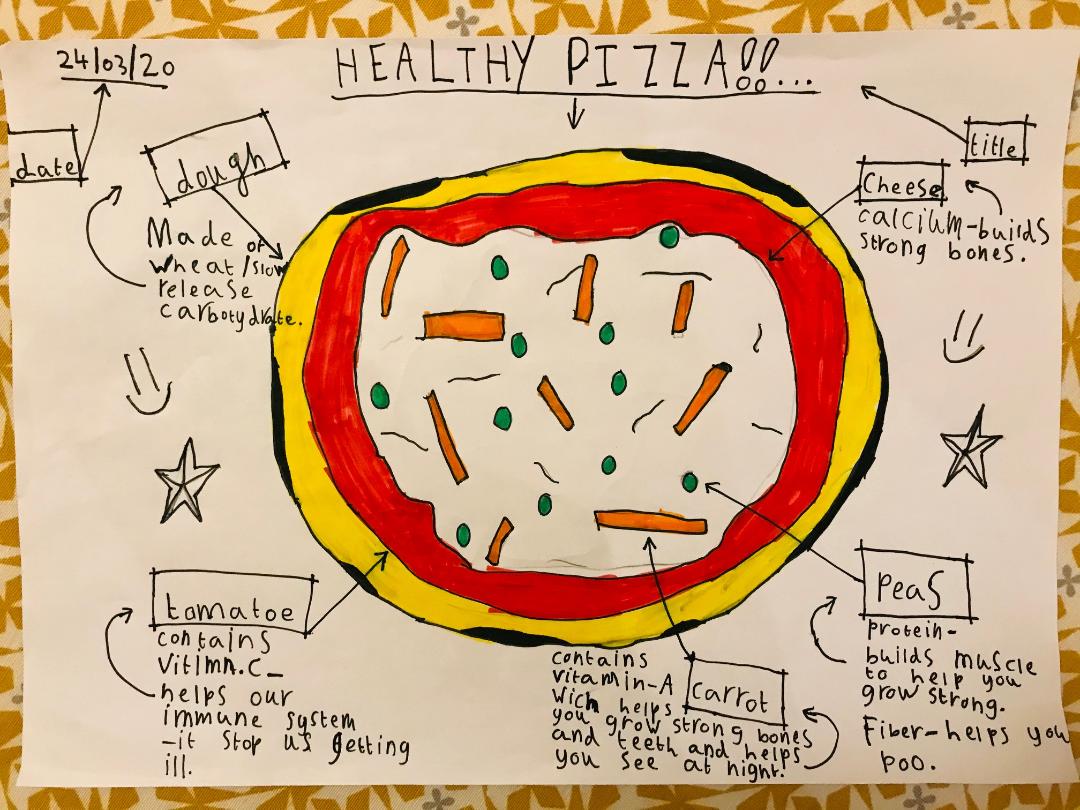 24/03/20
HEALTHY PIZZA!!...
date
dough
Made of
wheat/slow
release
carbohydrate.
title
Cheese
calcium-builds
strong bones.
tomatoe
contains
Vitimn.C-
helps our
immune system
-it stop us getting
ill.
carrot
contains
vitamin-A
wich helps
you grow strong bones
and teeth and helps
you see at night.
Peas
protein-
builds muscle
to help you
grow strong.
Fiber-helps you
poo.